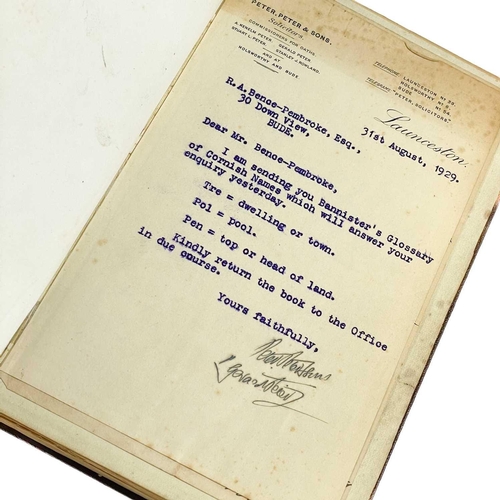 PETER, PETER & SONS,
Solicitors.
COMMISSIONERS FOR OATHS.
GERALD PETER
STUART L. PETER. STANLEY H. ROWLAND.
AND AT
HOLSWORTHY AND BUDE
TELEPHONE: LAUNCESTON Nº 29.
HOLSWORTHY Nº
BUDE Nº
TELEGRAMS "PETER, SOLICITORS."
Launceston.
31st August, 1929.
R.A.Benoe-Pembroke, Esq.,
30 Down View,
BUDE.
Dear Mr. Benoe-Pembroke,
I am sending you Bannister's Glossary
of Cornish Names which will answer your
enquiry yesterday.
Tre = dwelling or town.
Pol = pool.
Pen = top or head of land.
Kindly return the book to the Office
in due course.
Yours faithfully,